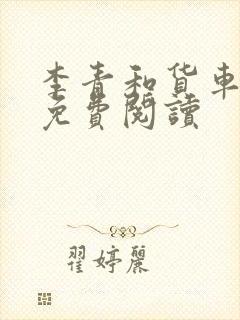 李青和货車
免費閱讀
翟婷麗